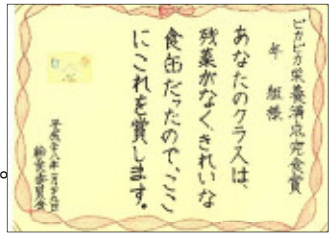 ピカピカ栄養満点完食賞
年 組様
あなたのクラスは、
残菜がなくきれいな
食缶だったので、ここ
にこれを賞します。
給食委員会